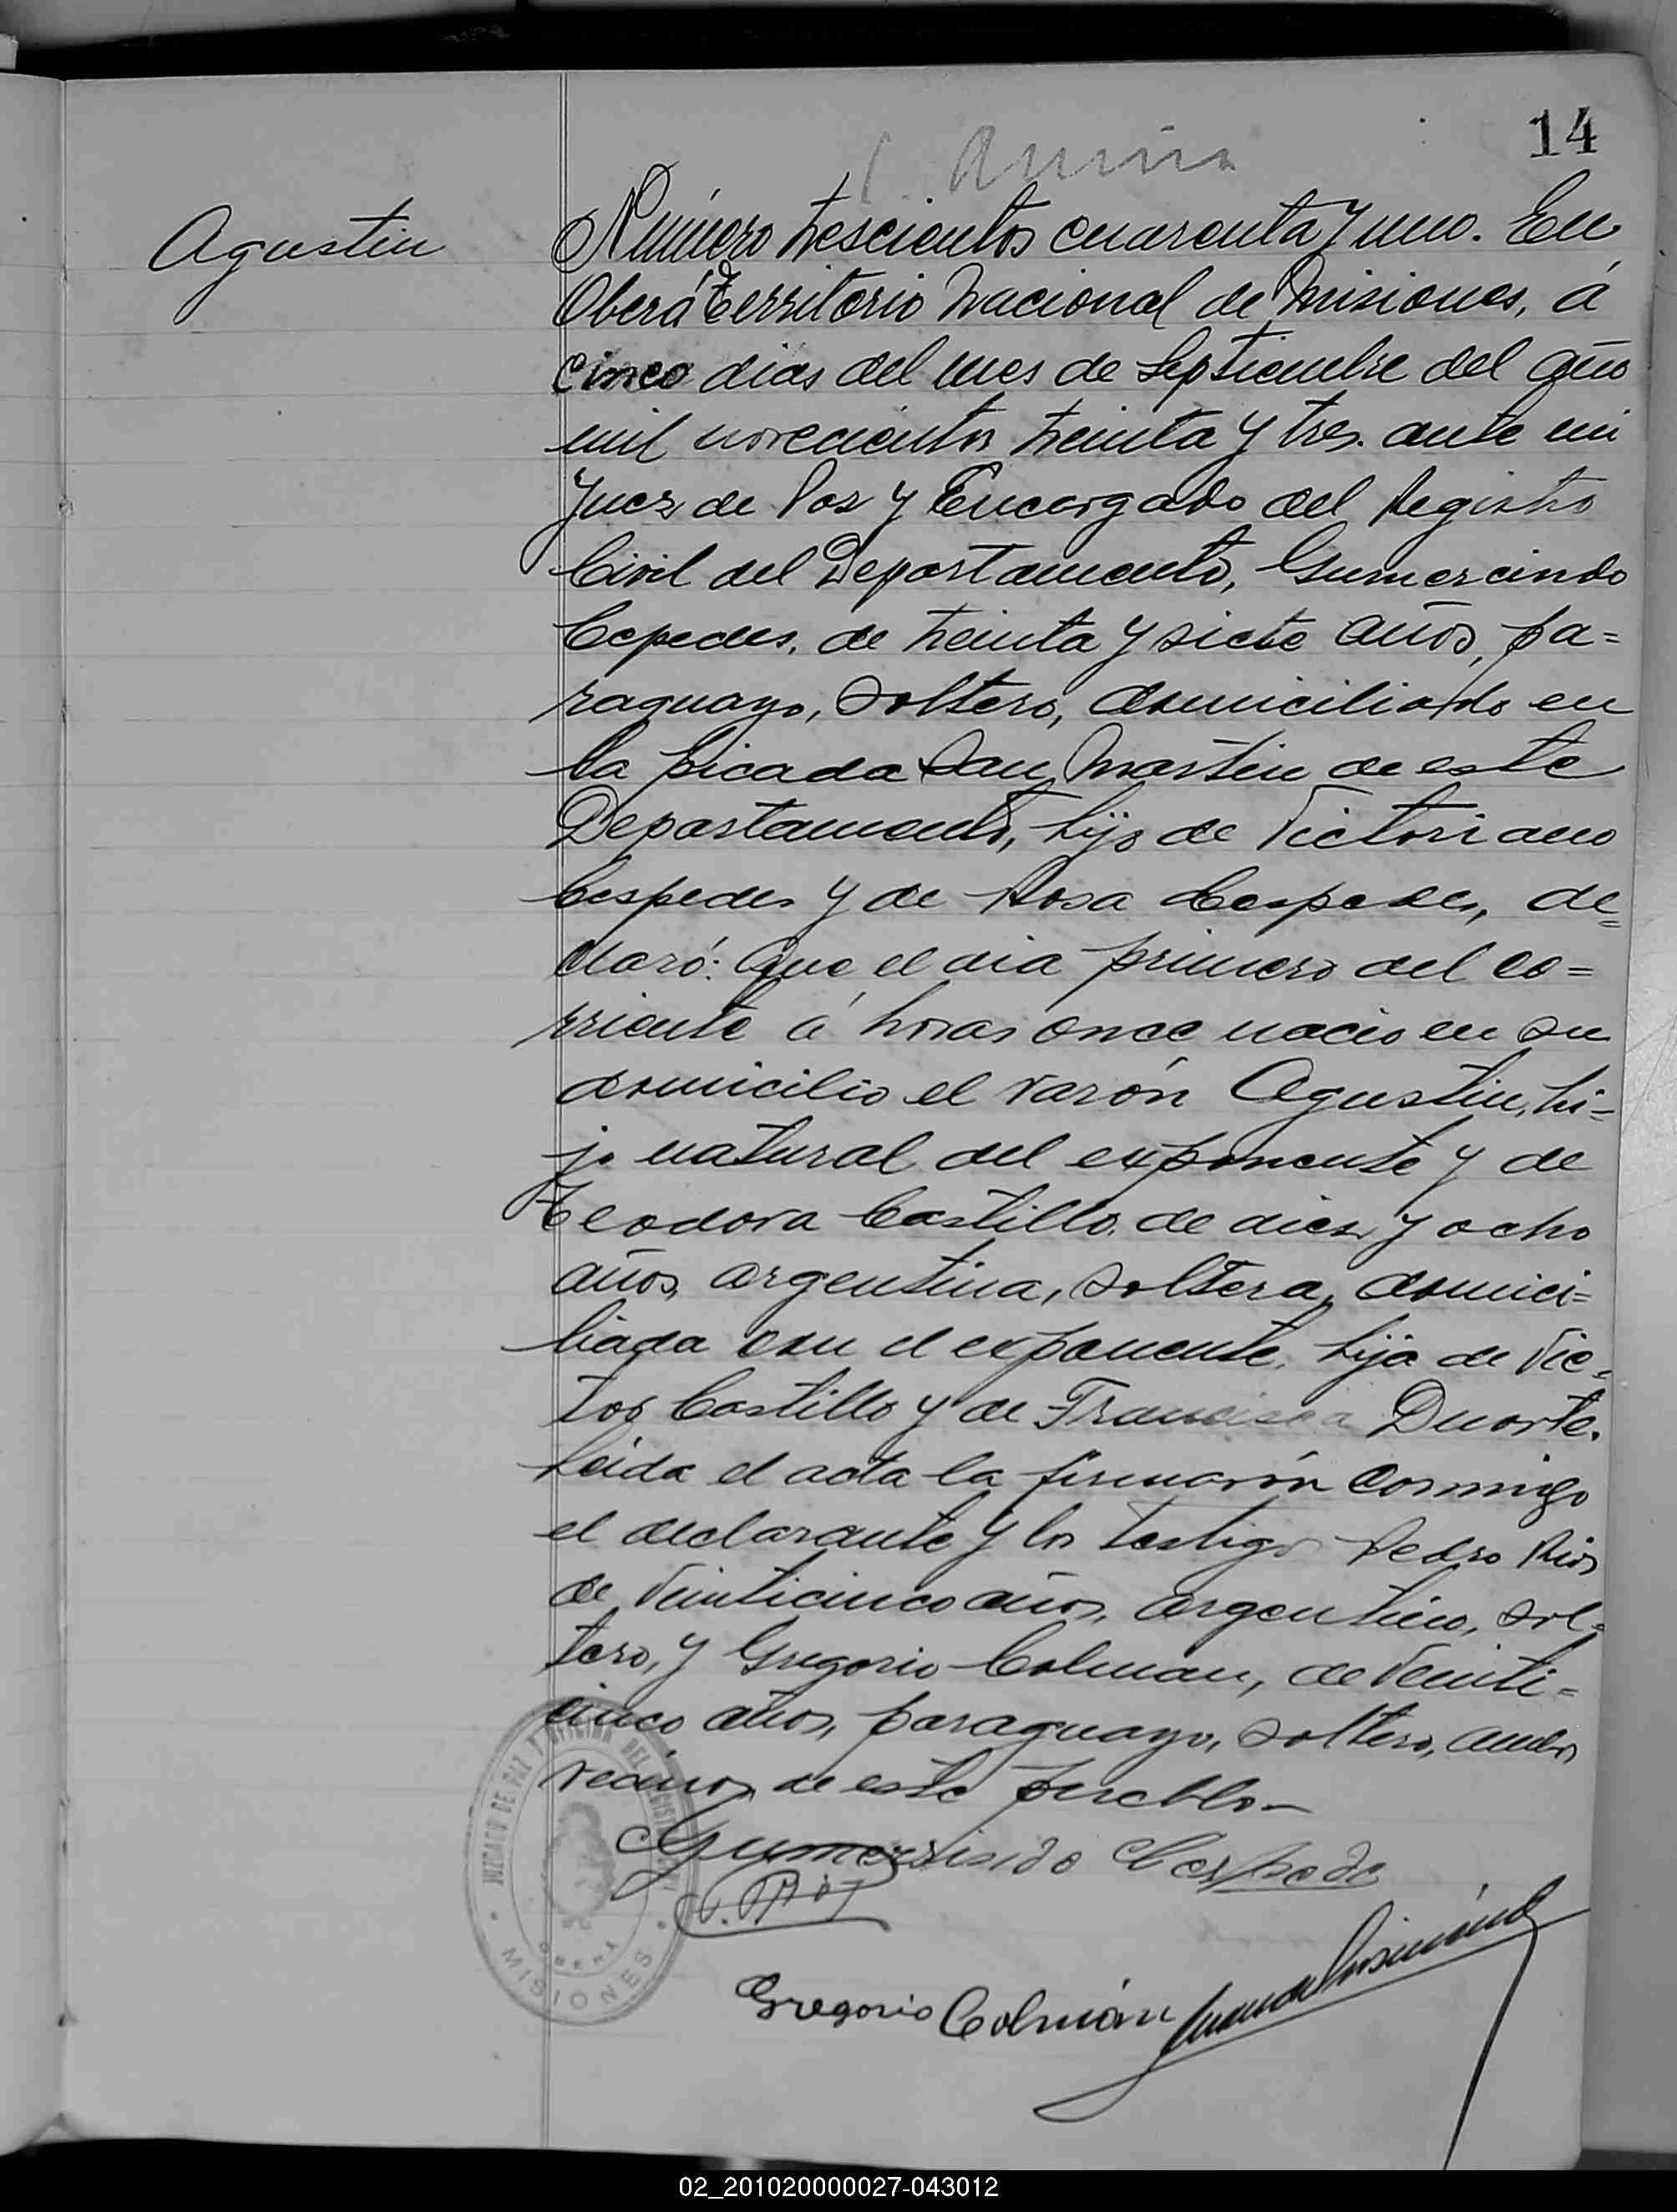 14
Agustin
Número trescientos cuarenta y uno. En
Oberá Territorio Nacional de Misiones, á
cinco dias del mes de Septiembre del año
mil novecientos treinta y tres. ante mi
Juez de Paz y Encargado del Registro
Civil del Departamento, Gumercindo
Cepedes, de treinta y siete años, pa=
raguayo, soltero, domiciliado en
la picada San Martin de este
Departamento, hijo de Victoriano
Cespedes y de Rosa Cespedes, de=
claró: Que el dia primero del co=
rriente á horas once nacio en su
domicilio el varón Agustin, hi=
jo natural del exponente y de
Teodora Castillo, de diez y ocho
años, argentina, soltera, domici=
liada con el exponente, hija de Vic=
tor Castillo y de Francisca Duarte.
Leida el acta la firmarón conmigo
el declarante y los testigos Pedro Rios
de veinticinco años, argentino, sol=
tero, y Gregorio Colman, de veinti=
cinco años, paraguayo, soltero, ambos
vecinos de este pueblo-
Gumersindo Cespede
P. Rios
Gregorio Colmán
JUZGADO DE PAZ Y OFICINA DEL REGISTRO CIVIL
OBERA
MISIONES
02_201020000027-043012